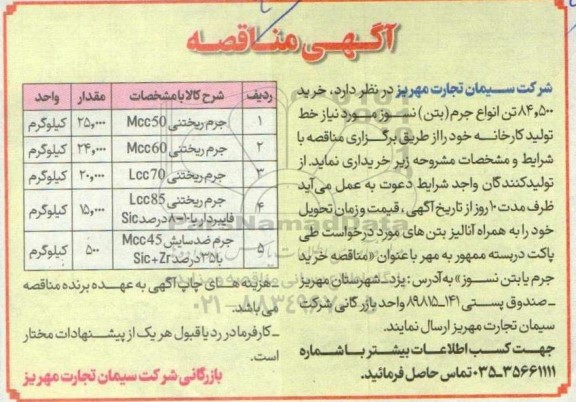 آگهی مناقصه
شرکت سیمان تجارت مهریز در نظر دارد، خرید
۸۴٫۵۰۰ تن انواع جرم (بتن) نسوز مورد نیاز خط
تولید کارخانه خود را از طریق برگزاری مناقصه با
شرایط و مشخصات مشروحه زیر خریداری نماید. از
تولیدکنندگان واجد شرایط دعوت به عمل می آید
ظرف مدت ۱۰ روز از تاریخ آگهی، قیمت و زمان تحویل
خود را به همراه آنالیز بتن های مورد درخواست طی
پاکت دربسته ممهور به مهر با عنوان «مناقصه خرید
جرم یا بتن نسوز» به آدرس: یزد ـ شهرستان مهریز
ـ صندوق پستی ۱۴۱ـ۸۹۸۱۵ واحد بازرگانی شرکت
سیمان تجارت مهریز ارسال نمایند.
جهت کسب اطلاعات بیشتر با شماره
۳۵۶۶۱۱۱۱ـ۰۳۵ تماس حاصل فرمائید.
ردیف شرح کالا با مشخصات مقدار واحد
۱ جرم ریختنی Mcc50 ۲۵٫۰۰۰ کیلوگرم
۲ جرم ریختنی Mcc60 ۲۴٫۰۰۰ کیلوگرم
۳ جرم ریختنی Lcc70 ۲۰٫۰۰۰ کیلوگرم
۴ جرم ریختنی Lcc85 ۱۵٫۰۰۰ کیلوگرم
فایبردار با ۱۰-۸ درصد Sic
۵ جرم ضدسایش Mcc45 ۵۰۰ کیلوگرم
با ۳۵ درصد Sic+Zr
ـ هزینه های چاپ آگهی به عهده برنده مناقصه
می باشد.
ـ کارفرما در رد یا قبول هر یک از پیشنهادات مختار
است.
بازرگانی شرکت سیمان تجارت مهریز